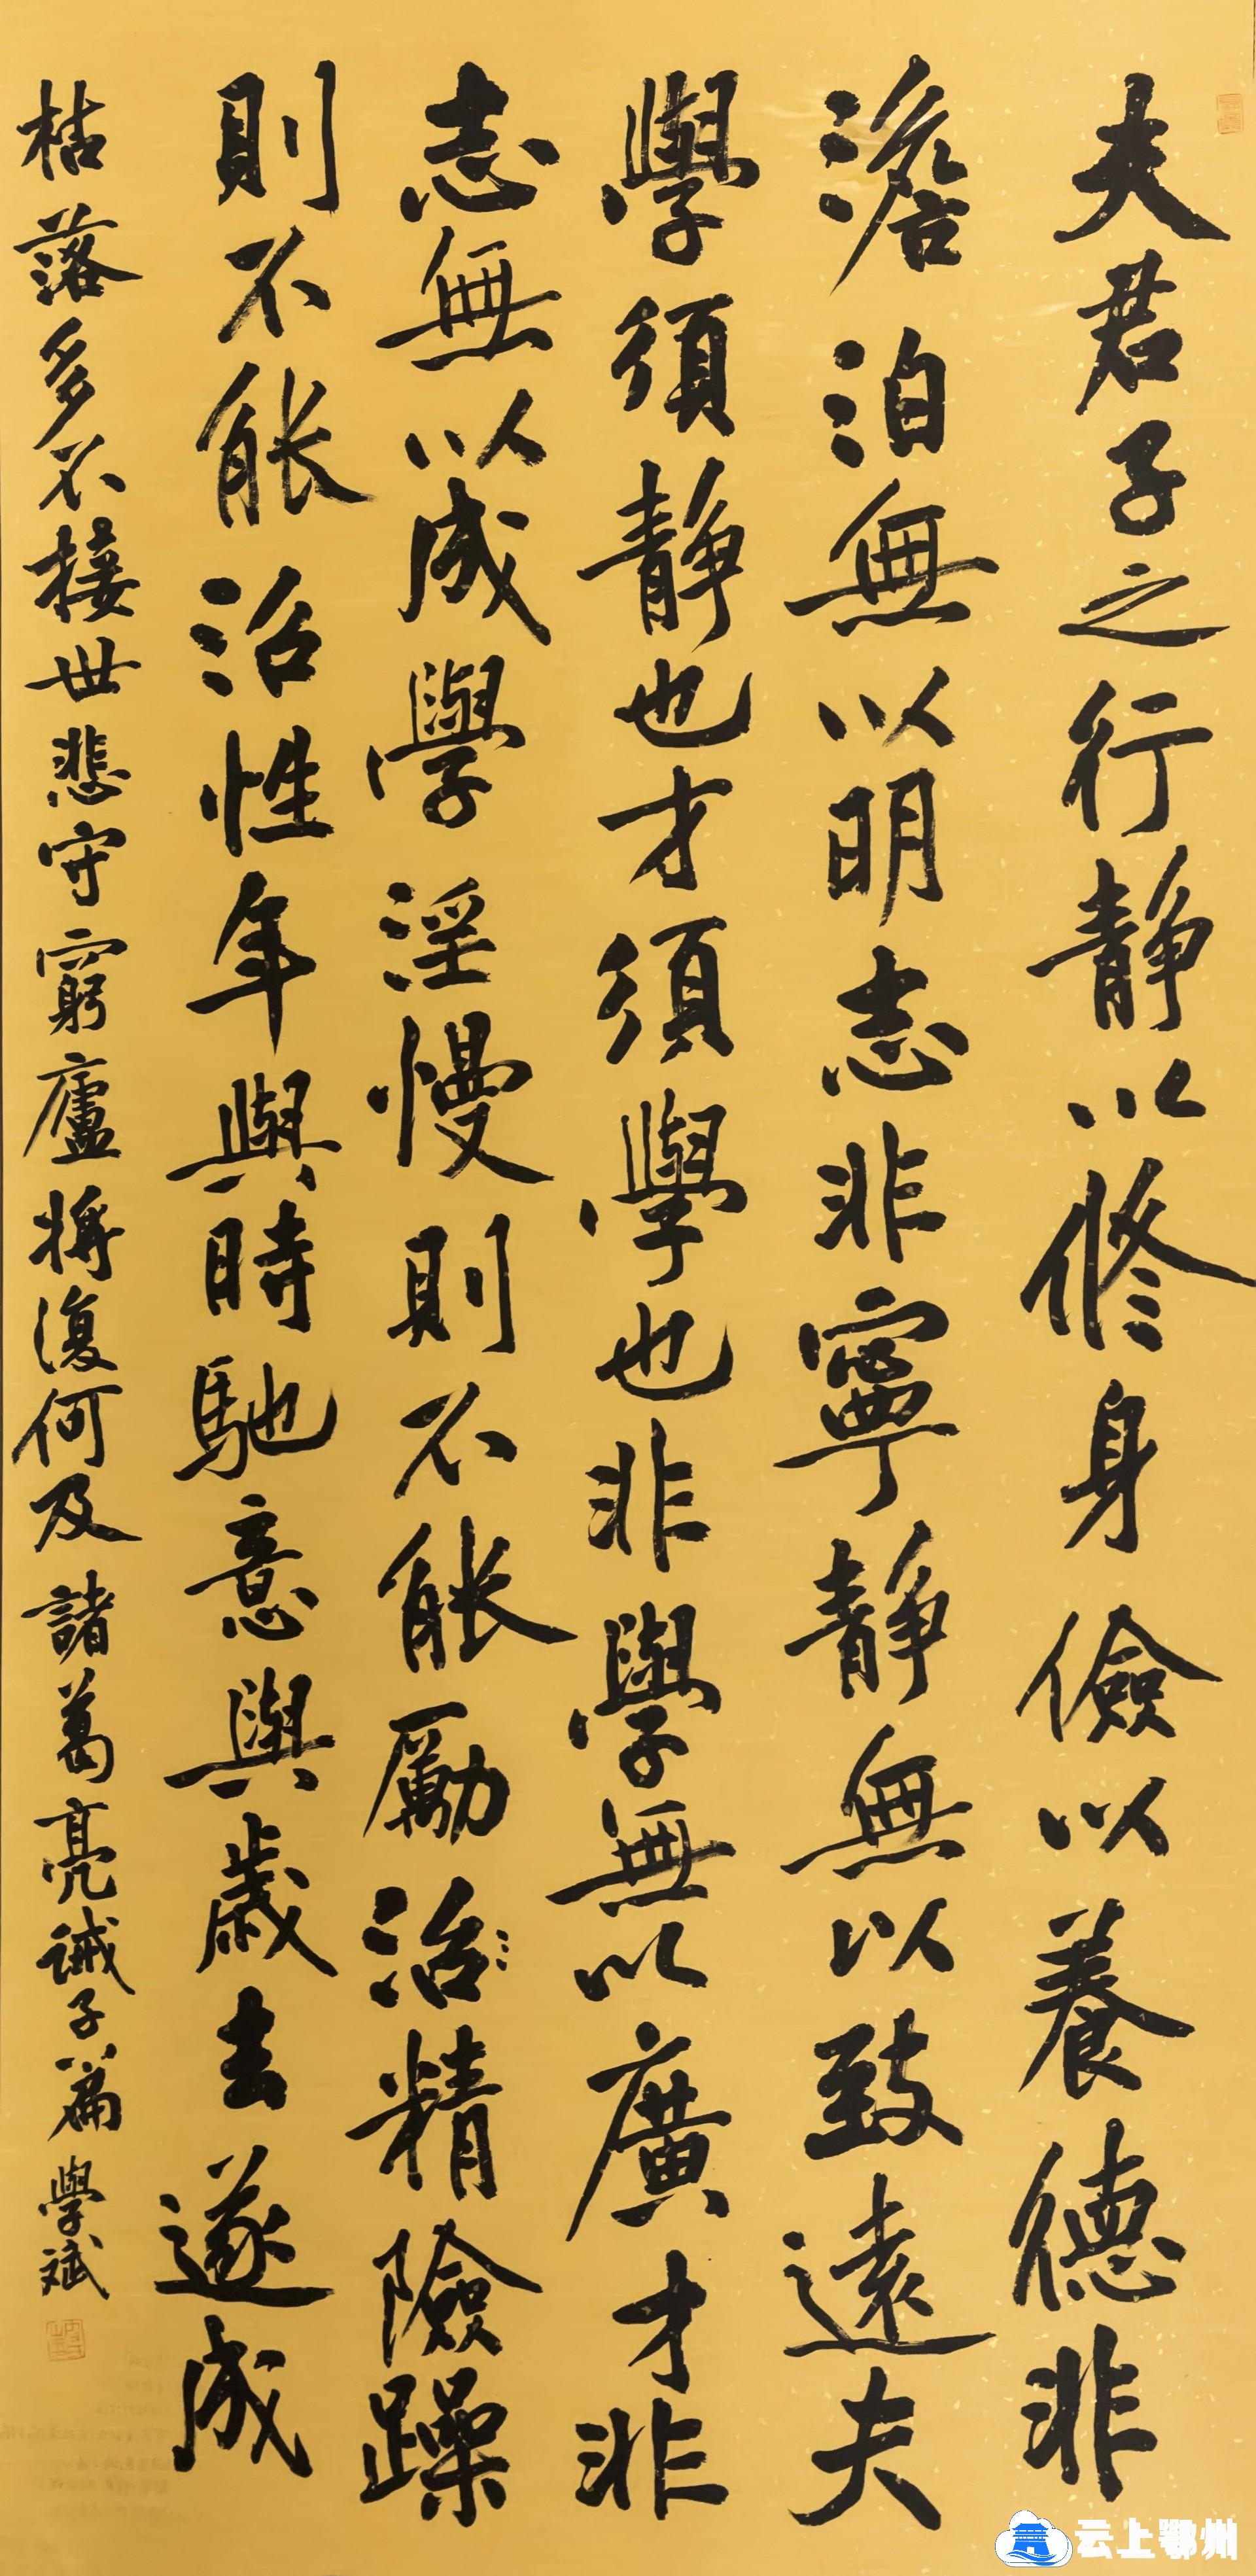 夫君子之行靜以修身儉以養德非
澹泊無以明志非寧靜無以致遠夫
學須靜也才須學也非學無以廣才非
志無以成學淫慢則不能勵治精險躁
則不能治性年與時馳意與歲去遂成
枯落多不接世悲守窮廬將復何及 諸葛亮誡子篇 學斌
云上鄂州